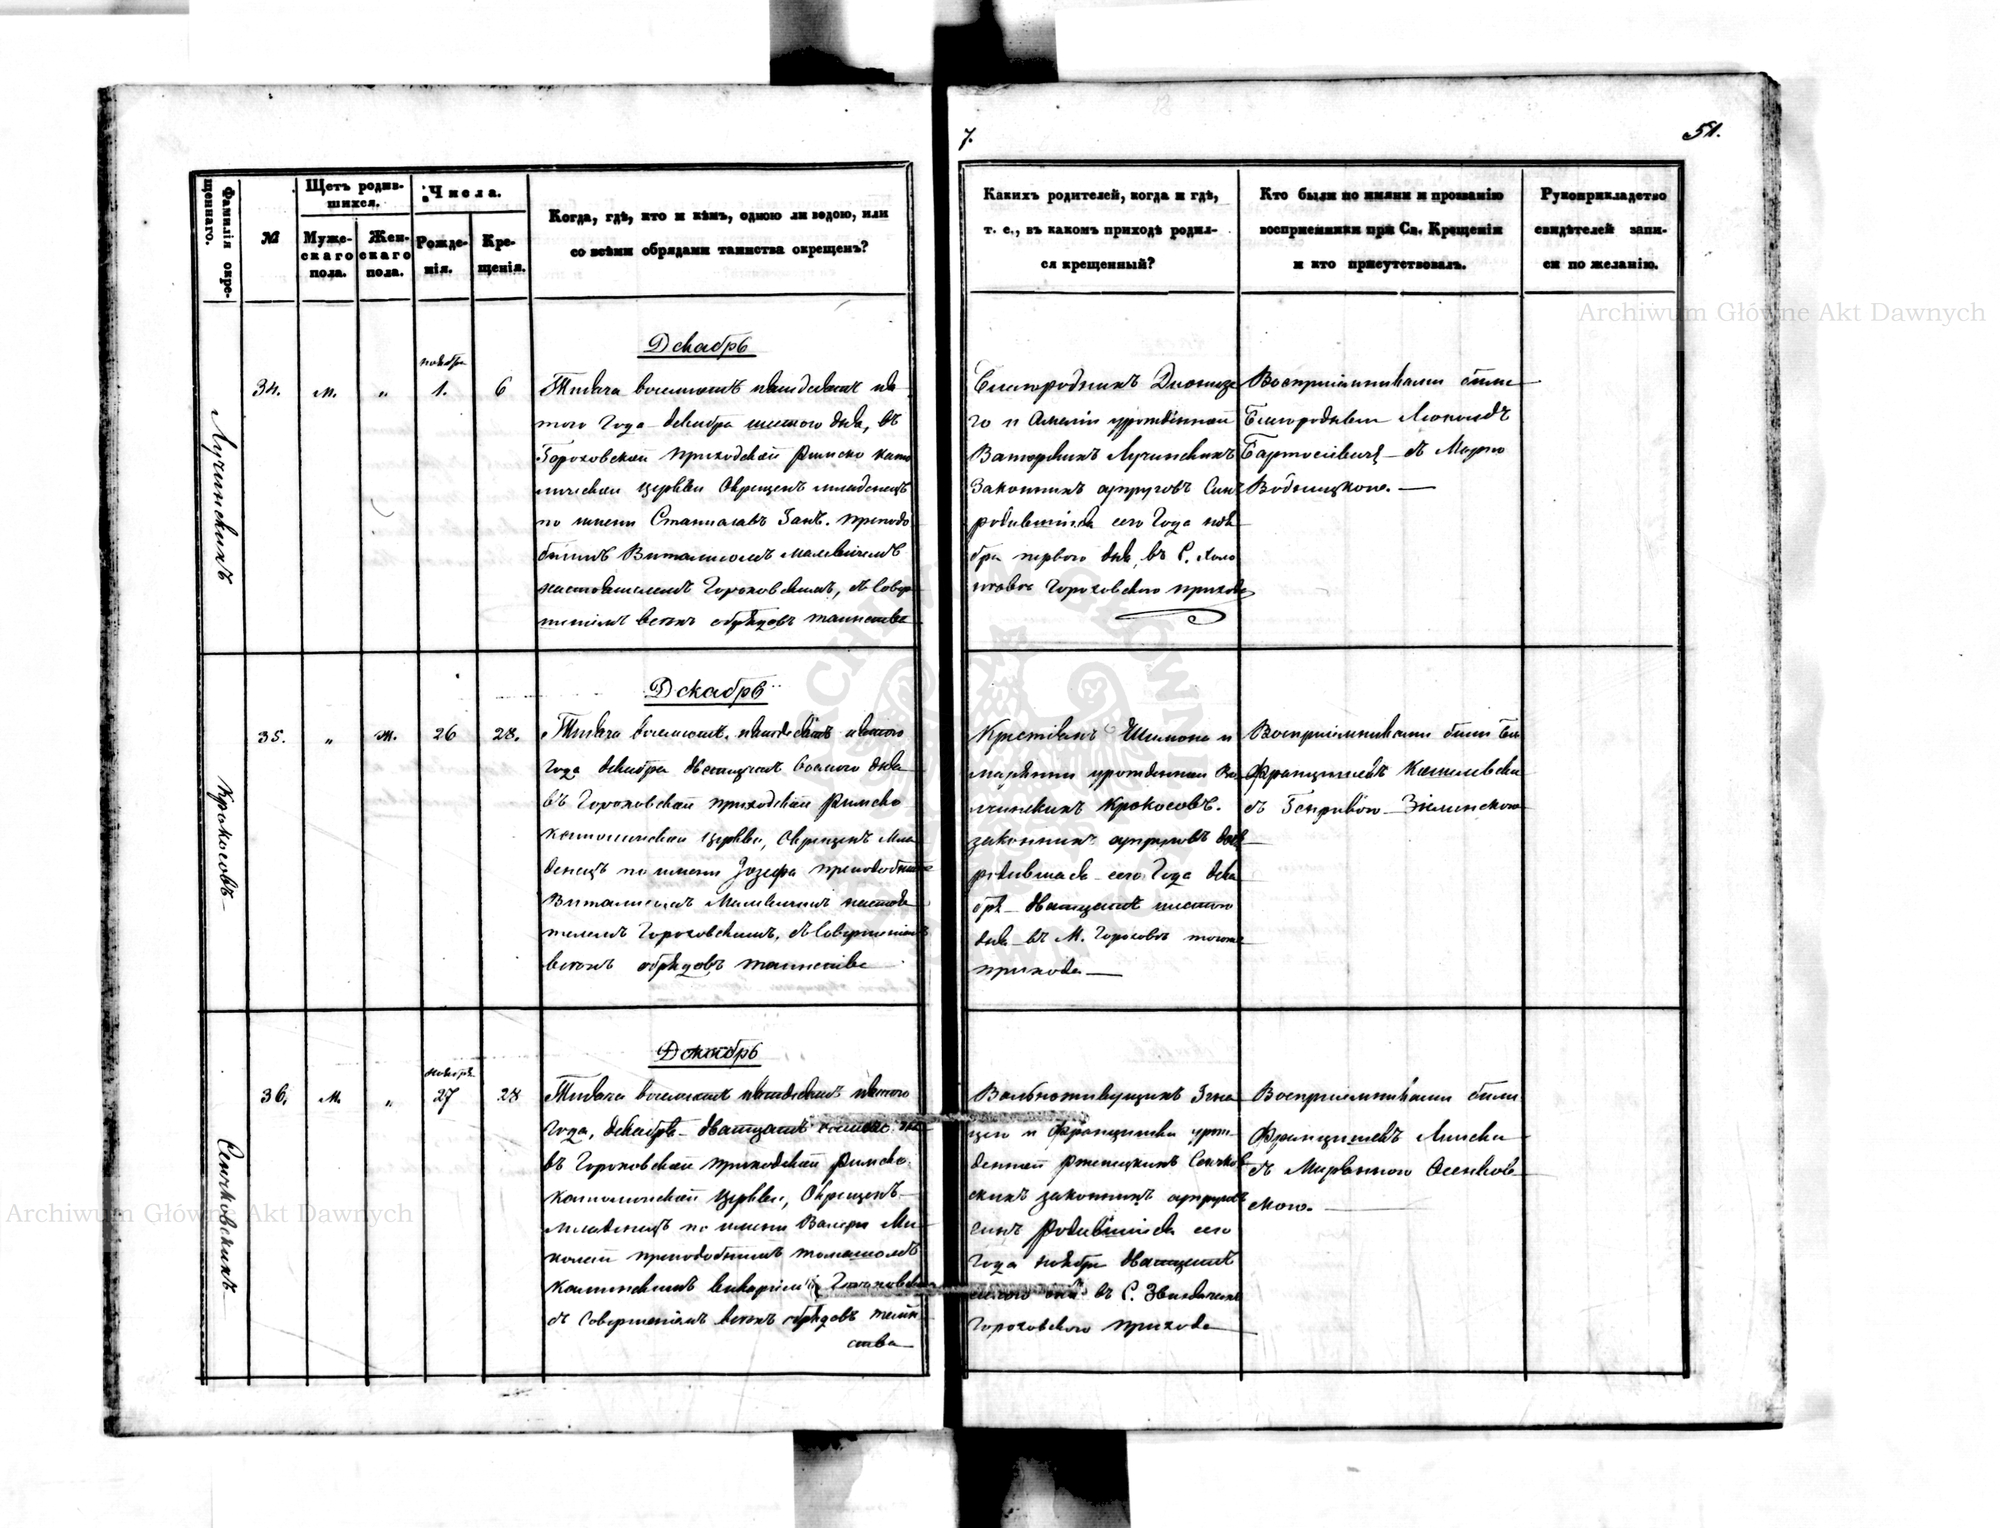 7.
51.
Фамилія окре-
щеннаго.
№
Щетъ родив-
шихся.
Муже-
скаго
пола.
Жен-
скаго
пола.
Числа.
Рожде-
нія.
Кре-
щенія.
Когда, гдѣ, кто и кѣмъ, одною ли водою, или
со всѣми обрядами таинства окрещенъ?
Каких родителей, когда и гдѣ,
т. е., въ какомъ приходѣ родил-
ся крещенный?
Кто были по имяни и прозванію
воспріемники при Св. Крещеніи
и кто присутствовалъ.
Рукоприкладство
свидѣтелей запи-
си по желанію.
Archiwum Główne Akt Dawnych
Лучинскихъ
34.
м.
„
ноября
1.
6
Декабрь
Тысяча восемсотъ пятдесятъ пя
того Года декабря шестого дня, въ
Гороховской приходской Римско като
лической Церкви Окрещенъ младенецъ
по имени Станиславъ Препод
бнымъ Виталисомъ Малевичемъ
настоятелемъ Гороховскимъ, съ Совер
шеніемъ всехъ обрядовъ таинства
Благородныхъ Дионизе
го и Амелии урожденной
Лучинскихъ
Законныхъ супруговъ Сынъ
родившійся сего Года ноя
бря первого дня, въ С. Холо
Гороховского прихода
Воспріемниками были
Благородные Леопольдъ
Бартосевичъ съ Марію
Крокосовъ
35.
„
ж.
26
28.
Декабрь
Тысяча восемсотъ пятдесятъ пятого
Года декабря двадцать восмого дня
въ Гороховской приходской Римско
католической Церкви, Окрещенъ Мла
денецъ по имени Іозефа преподобнымъ
Виталисомъ Малевичемъ настоя
телемъ Гороховскимъ, съ Совершеніемъ
всехъ обрядовъ таинства
Крестьянъ Шимона и
Маріанны урожденной
Крокосовъ
законныхъ супруговъ дочь
родившаяся сего Года дека
бря двадцать шестого
дня въ М. Гороховѣ тогоже
прихода
Воспріемниками были
Францишекъ
съ Зелинскою
Сенчковскихъ
36.
м.
„
ноября
27
28
Декабрь
Тысяча восемсотъ пятдесятъ пятого
Года, декабря двадцать восмого дня
въ Гороховской приходской Римско
католической Церкви, Окрещенъ
младенецъ по имени Валери Ми
колай преподобнымъ Томашомъ
Калиновскимъ викаріемъ Гороховскимъ
съ Совершеніемъ всехъ обрядовъ таин
ства
Вольноживущихъ Игна
цего и Францишки урож
денной Ржепицкихъ Сенчков
скихъ законныхъ супруговъ
сынъ родившійся сего
Года ноября двадцать
седмого дня въ С.
Гороховского прихода
Воспріемниками были
Францишекъ Липски
съ Маріанною Осенков
скою.
Archiwum Główne Akt Dawnych